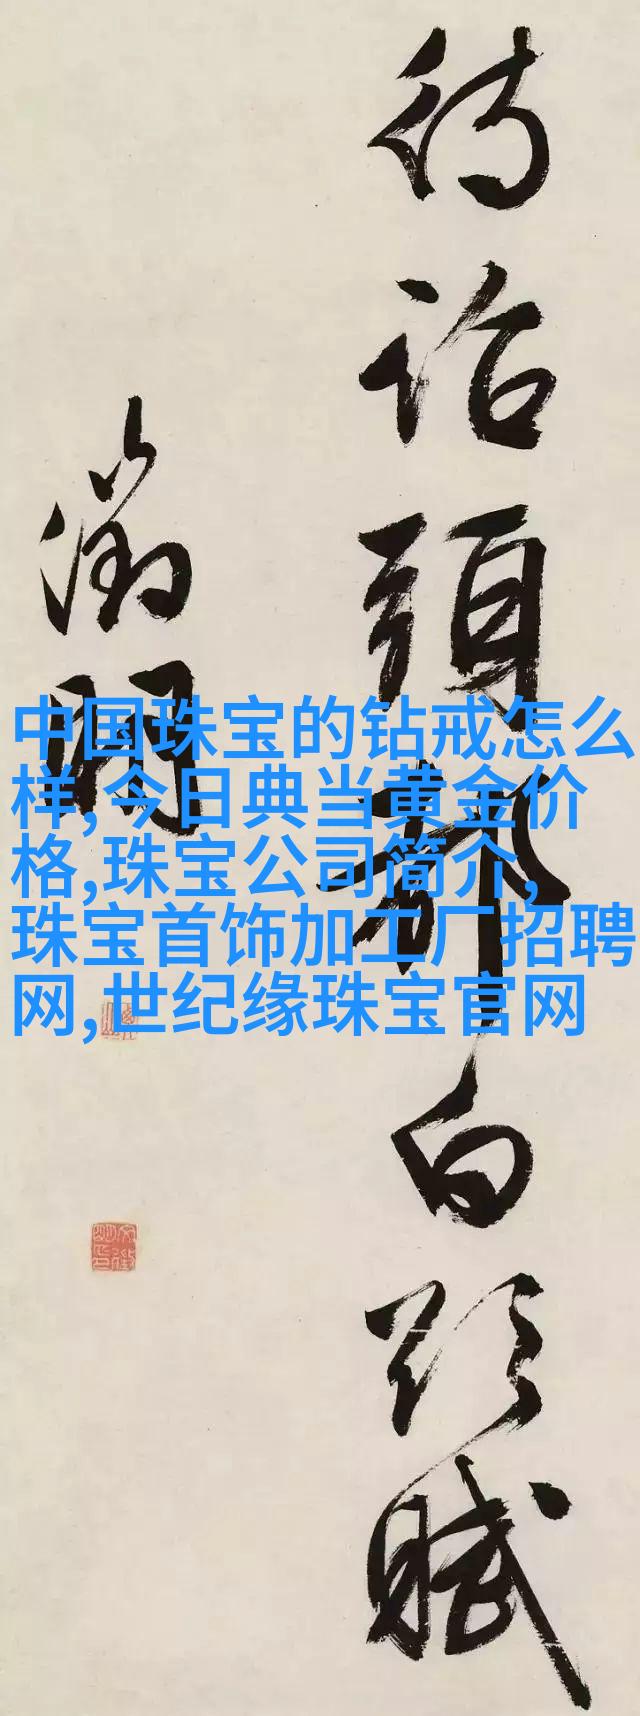 待詔頭都白頭賦
徵明
中国珠宝的钻戒怎么
样,今日典当黄金价
格,珠宝公司简介,
珠宝首饰加工厂招聘
网,世纪缘珠宝官网